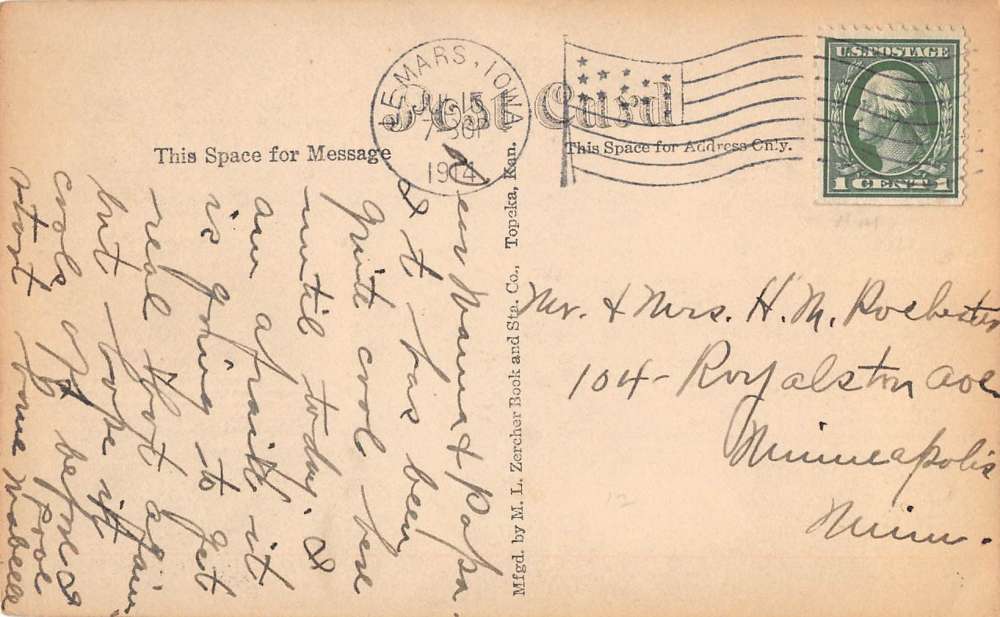 Post Card
LE MARS, IOWA
JUL 15
7 30P
1914
U.S. POSTAGE
1 CENT 1
This Space for Message
This Space for Address Only.
Mfgd. by M. L. Zercher Book and Sta. Co., Topeka, Kan.
Dear Mama & Papa.
It has been
quite cool here
until today. I
am afraid it
is going to get
real hot again
but hope it
cools off before I
start home
Love Mabelle
Mr. & Mrs. H. M. Rochester
104- Royalston Ave
Minneapolis
Minn.